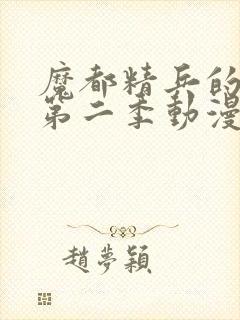 魔都精兵的
第二季動漫
趙夢穎